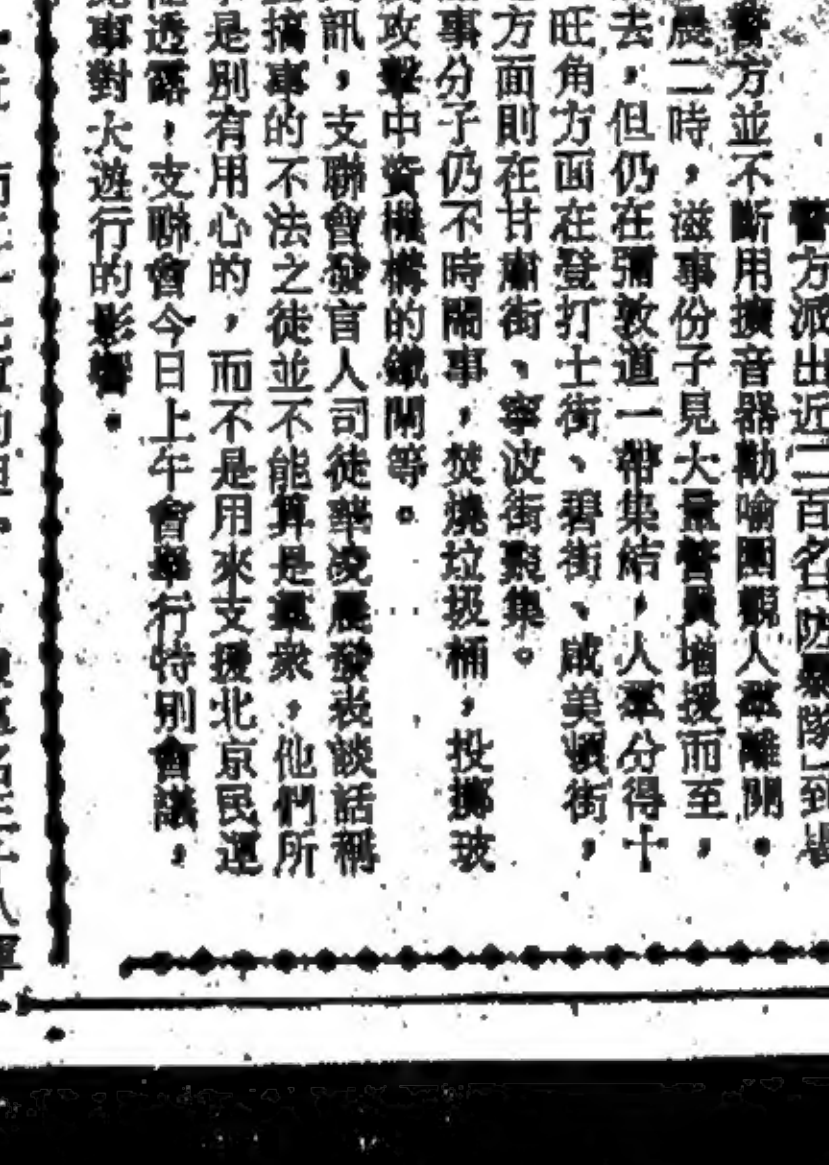 警方派出近二百名防暴隊到場
警方並不斷用擴音器勸喻圍觀人羣離開。
晨二時，滋事份子見大量警員增援而至，
去，但仍在彌敦道一帶集結，人羣分得十
旺角方面在登打士街、碧街、咸美頓街，
方面則在甘肅街、寧波街聚集。
事分子仍不時鬧事，焚燒垃圾桶，投擲玻
攻擊中資機構的鐵閘等。
訊，支聯會發言人司徒華凌晨發表談話稱
搞事的不法之徒並不能算是羣衆，他們所
是別有用心的，而不是用來支援北京民運
透露，支聯會今日上午會舉行特別會議，
事對大遊行的影響。